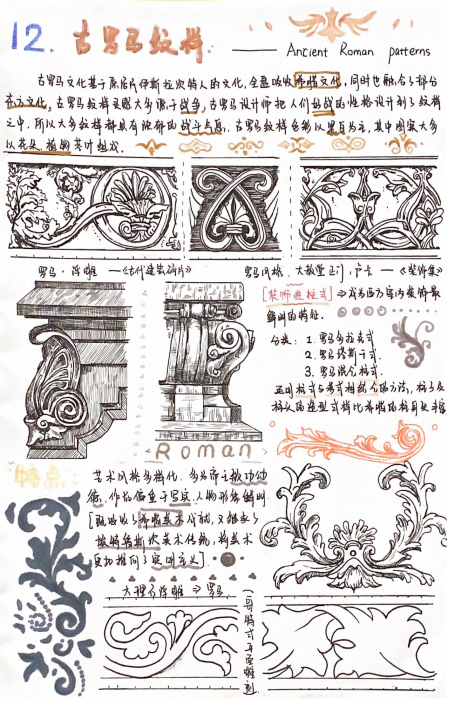 12. 古罗马纹样.
—— Ancient Roman patterns
古罗马文化基于原居民伊斯拉坎特人的文化,全盘吸收希腊文化,同时也融合了部分
东方文化,古罗马纹样灵感大多源于战争,古罗马设计师把人们好战的性格设计到了纹样
之中,所以大多纹样都具有浓郁的战斗意愿,古罗马纹样色彩以黑白为主,其中图案大多
以花朵、植物茎叶组成.
罗马·浮雕 —《古代建筑碎片》
罗马风格、大教堂正门,卢卡 —《装饰集》
[装饰在柱式] ⇒ 成为西方室内装饰最
鲜明的特征.
分类: 1. 罗马多拉克式
2. 罗马塔斯干式.
3. 罗马混合柱式.
运用柱式与券式相结合的方法,柱子及
柱头的造型式样比希腊的柱可更丰富
Roman
特点:
艺术风格多样化,多为帝王歌功颂
德,作品偏重于写实,人物形体鲜明
[既吸收了希腊美术成就,又继承了
埃特鲁斯坎美术传统,将美术
更加推向了实用主义].
大理石浮雕 ⇒ 罗马
哥特式车座雕刻